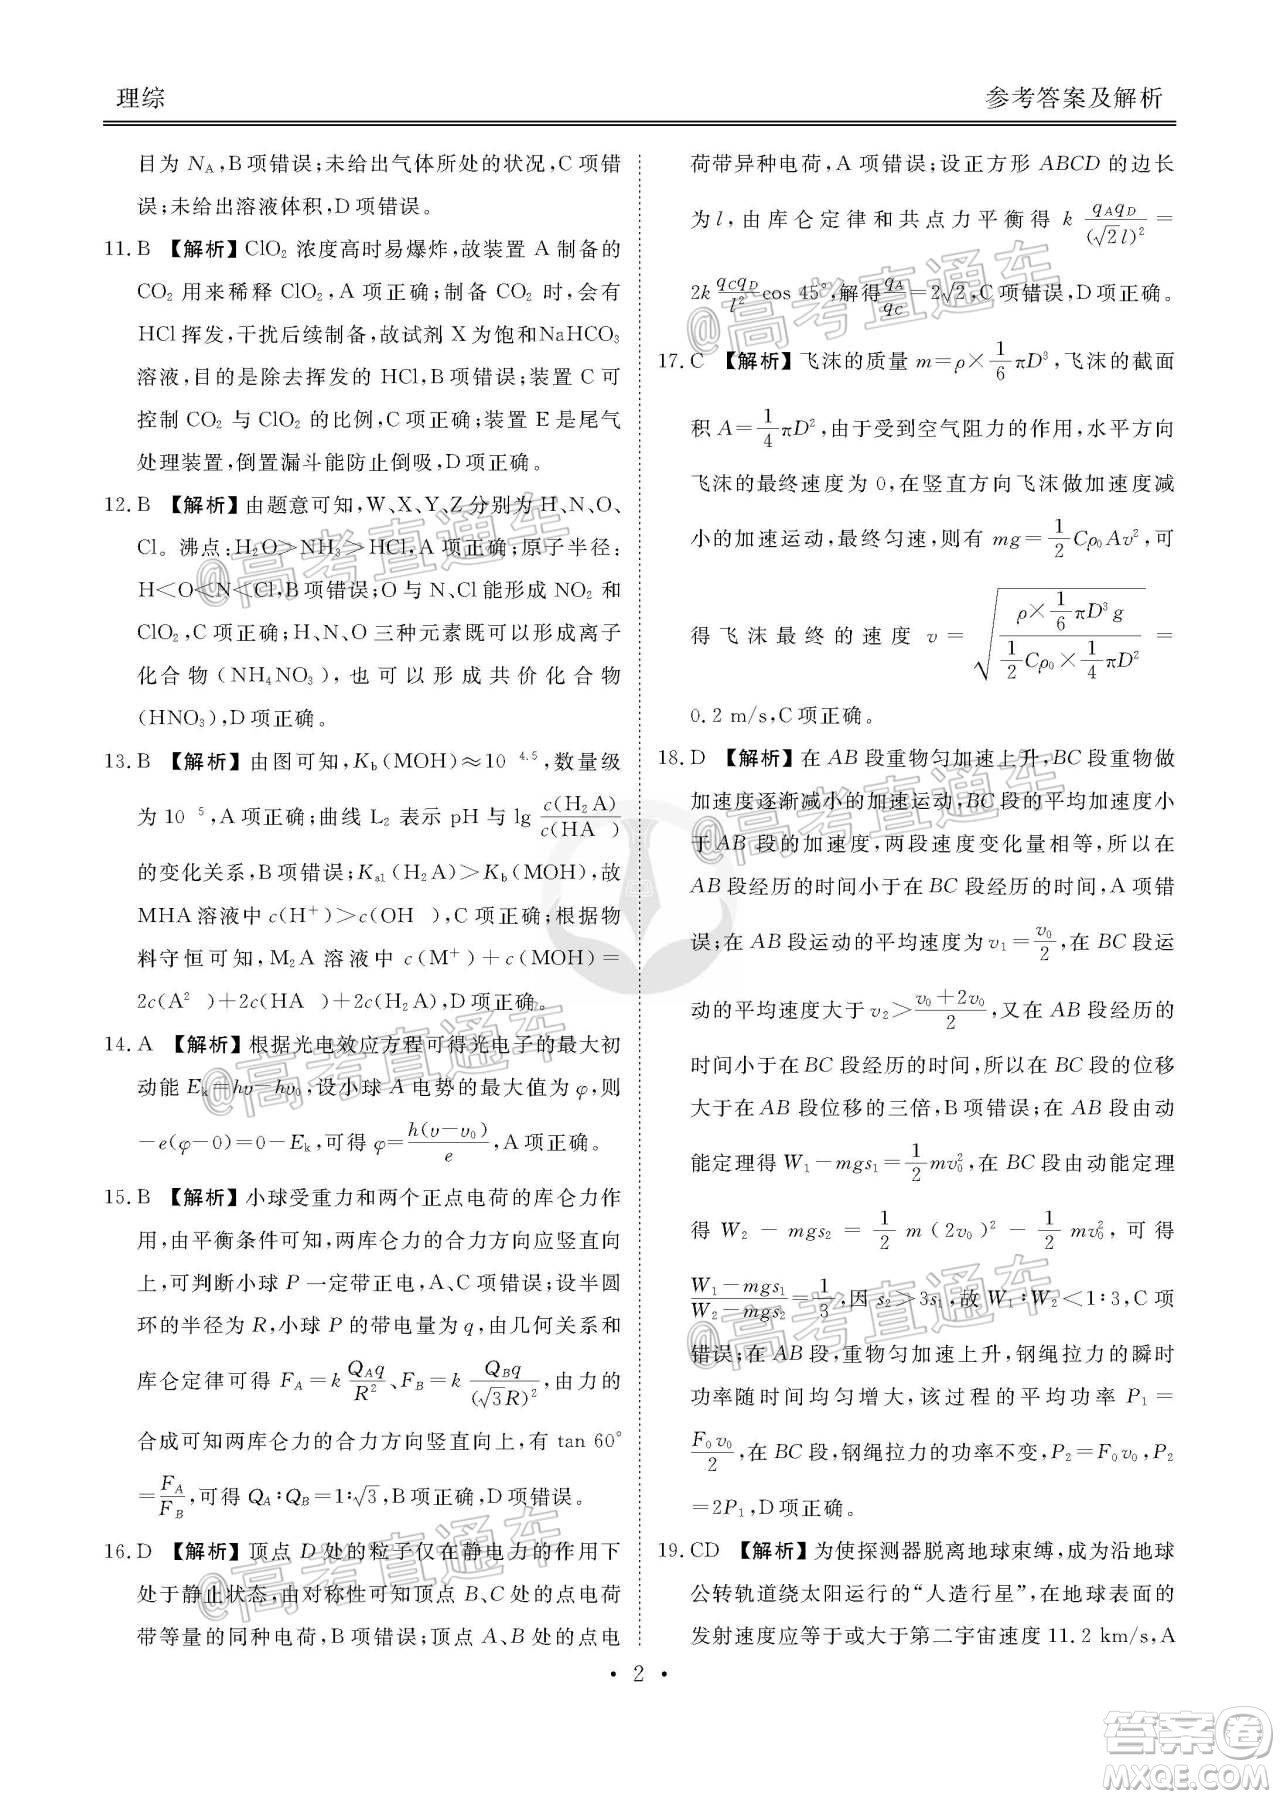 理综
参考答案及解析
目为 N_A,B 项错误;未给出气体所处的状况,C 项错
误;未给出溶液体积,D 项错误。
11. B 【解析】ClO₂ 浓度高时易爆炸,故装置 A 制备的
CO₂ 用来稀释 ClO₂,A 项正确;制备 CO₂ 时,会有
HCl 挥发,干扰后续制备,故试剂 X 为饱和NaHCO₃
溶液,目的是除去挥发的 HCl,B 项错误;装置 C 可
控制 CO₂ 与 ClO₂ 的比例,C 项正确;装置 E 是尾气
处理装置,倒置漏斗能防止倒吸,D 项正确。
12. B 【解析】由题意可知,W、X、Y、Z 分别为 H、N、O、
Cl。沸点:H₂O>NH₃>HCl,A 项正确;原子半径:
H<O<N<Cl,B 项错误;O 与 N、Cl 能形成 NO₂ 和
ClO₂,C 项正确;H、N、O 三种元素既可以形成离子
化合物(NH₄NO₃),也可以形成共价化合物
(HNO₃),D 项正确。
13. B 【解析】由图可知,K_b(MOH)≈10 ⁴·⁵,数量级
为 10 ⁵,A 项正确;曲线 L₂ 表示 pH 与 lg c(H₂A)/c(HA )
的变化关系,B 项错误;K_a1(H₂A)>K_b(MOH),故
MHA 溶液中 c(H⁺)>c(OH ),C 项正确;根据物
料守恒可知,M₂A 溶液中 c(M⁺)+c(MOH)=
2c(A² )+2c(HA )+2c(H₂A),D 项正确。
14. A 【解析】根据光电效应方程可得光电子的最大初
动能 E_k=hυ−hυ₀,设小球 A 电势的最大值为 φ,则
−e(φ−0)=0−E_k,可得 φ=h(υ−υ₀)/e,A 项正确。
15. B 【解析】小球受重力和两个正点电荷的库仑力作
用,由平衡条件可知,两库仑力的合力方向应竖直向
上,可判断小球 P 一定带正电,A、C 项错误;设半圆
环的半径为 R,小球 P 的带电量为 q,由几何关系和
库仑定律可得 F_A=k Q_Aq/R²、F_B=k Q_Bq/(√3R)²,由力的
合成可知两库仑力的合力方向竖直向上,有 tan 60°
=F_A/F_B,可得 Q_A∶Q_B=1∶√3,B 项正确,D 项错误。
16. D 【解析】顶点 D 处的粒子仅在静电力的作用下
处于静止状态,由对称性可知顶点 A、C 处的点电荷
带等量的同种电荷,B 项错误;顶点 A、B 处的点电
荷带异种电荷,A 项错误;设正方形 ABCD 的边长
为 l,由库仑定律和共点力平衡得 k q_Aq_D/(√2l)²=
2k q_Cq_D/l² cos 45°,解得 q_A/q_C=2√2,C 项错误,D 项正确。
17. C 【解析】飞沫的质量 m=ρ×1/6 πD³,飞沫的截面
积 A=1/4 πD²,由于受到空气阻力的作用,水平方向
飞沫的最终速度为 0,在竖直方向飞沫做加速度减
小的加速运动,最终匀速,则有 mg=1/2 Cρ₀Av²,可
得飞沫最终的速度 v=√((ρ×1/6 πD³g)/(1/2 Cρ₀×1/4 πD²))=
0.2 m/s,C 项正确。
18. D 【解析】在 AB 段重物匀加速上升,BC 段重物做
加速度逐渐减小的加速运动,BC 段的平均加速度小
于 AB 段的加速度,两段速度变化量相等,所以在
AB 段经历的时间小于在 BC 段经历的时间,A 项错
误;在 AB 段运动的平均速度为 v₁=v₀/2,在 BC 段运
动的平均速度大于 v₂>(v₀+2v₀)/2,又在 AB 段经历的
时间小于在 BC 段经历的时间,所以在 BC 段的位移
大于在 AB 段位移的三倍,B 项错误;在 AB 段由动
能定理得 W₁−mgs₁=1/2 mv₀²,在 BC 段由动能定理
得 W₂−mgs₂=1/2 m(2v₀)²−1/2 mv₀²,可得
(W₁−mgs₁)/(W₂−mgs₂)=1/3,因 s₂>3s₁,故 W₁∶W₂<1∶3,C 项
错误;在 AB 段,重物匀加速上升,钢绳拉力的瞬时
功率随时间均匀增大,该过程的平均功率 P₁=
F₀v₀/2,在 BC 段,钢绳拉力的功率不变,P₂=F₀v₀,P₂
=2P₁,D 项正确。
19. CD 【解析】为使探测器脱离地球束缚,成为沿地球
公转轨道绕太阳运行的“人造行星”,在地球表面的
发射速度应等于或大于第二宇宙速度 11.2 km/s,A
• 2 •
@高考直通车
@高考直通车
@高考直通车
@高考直通车
@高考直通车
@高考直通车
@高考直通车
答案卷
MXQE.COM